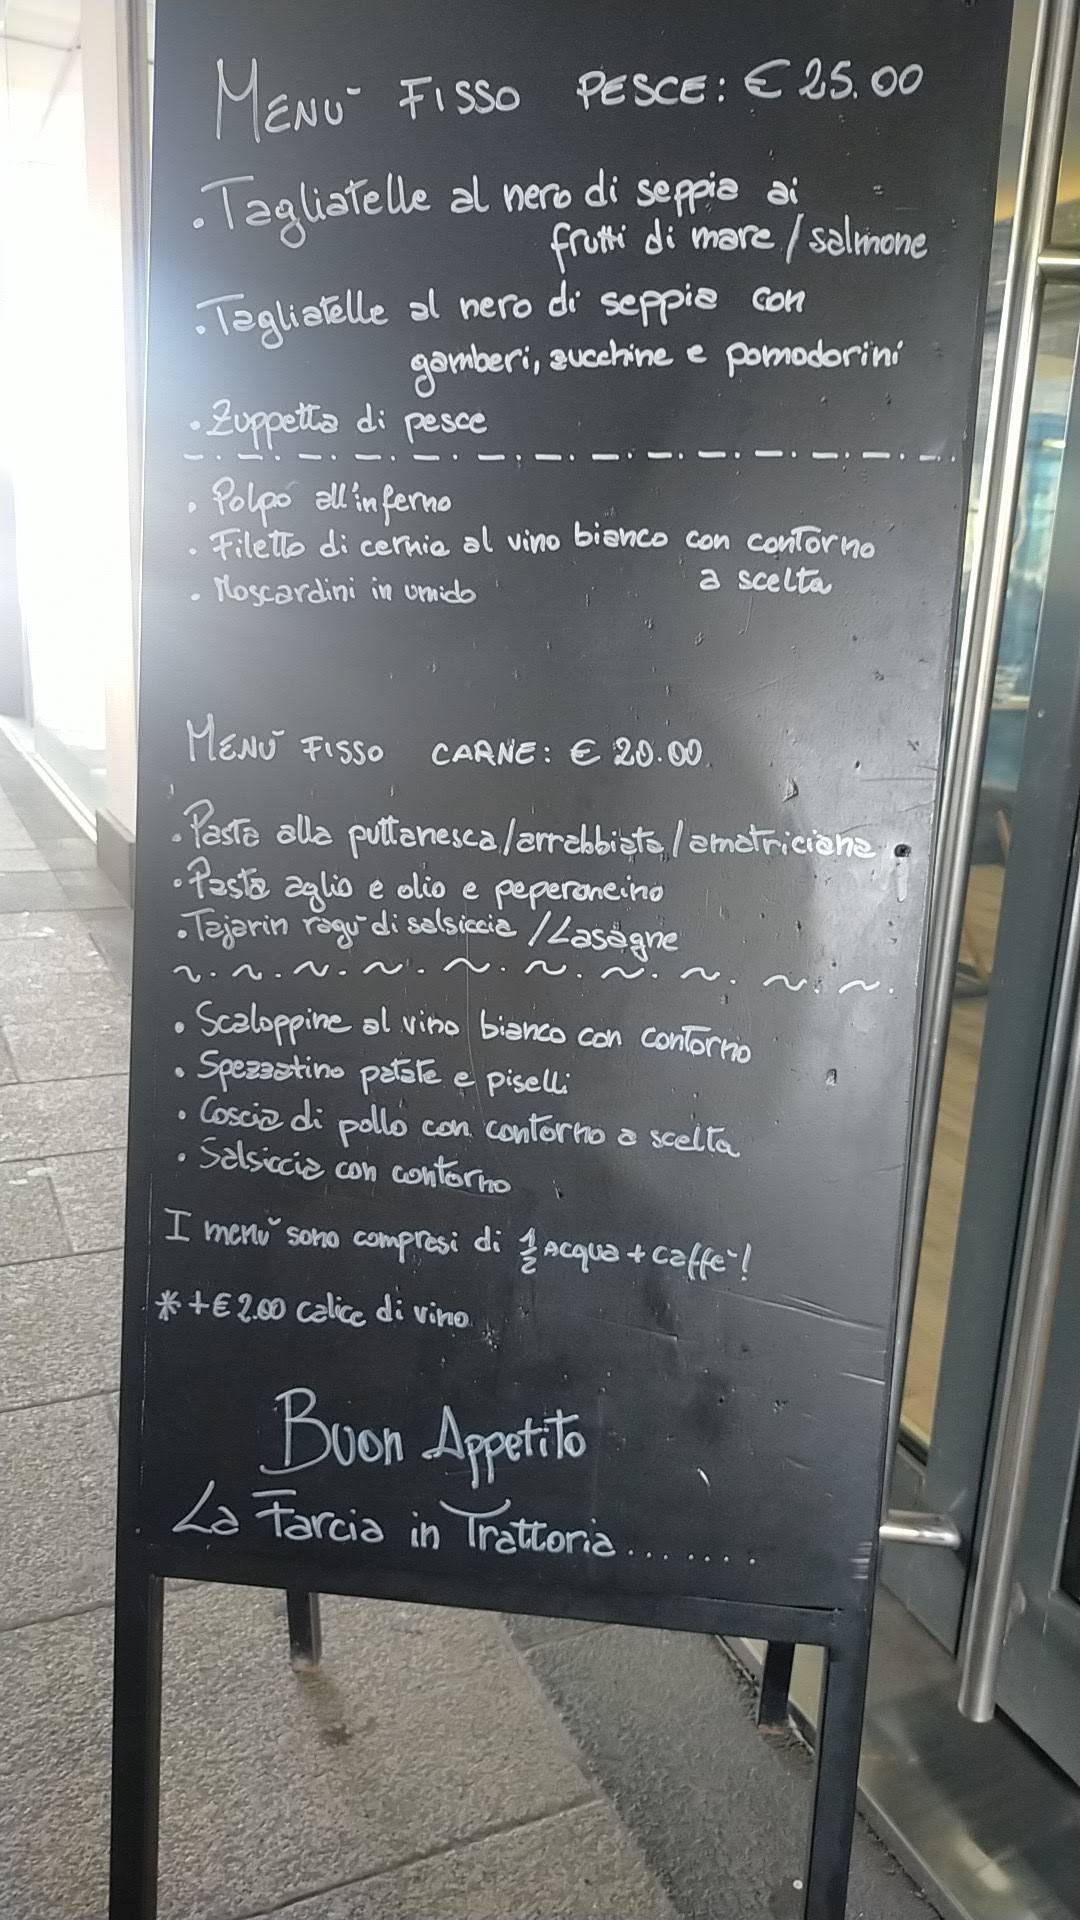 MENÙ FISSO PESCE: € 25.00
. Tagliatelle al nero di seppia ai
frutti di mare / salmone
. Tagliatelle al nero di seppia con
gamberi, zucchine e pomodorini
. Zuppetta di pesce
. Polpo all'inferno
. Filetto di cernia al vino bianco con contorno
a scelta
. Moscardini in umido
MENÙ FISSO CARNE: € 20.00
. Pasta alla puttanesca/arrabbiata/amatriciana
. Pasta aglio e olio e peperoncino
. Tajarin ragù di salsiccia / Lasagne
. Scaloppine al vino bianco con contorno
. Spezzatino patate e piselli
. Coscia di pollo con contorno a scelta
. Salsiccia con contorno
I menù sono compresi di ½ Acqua + caffè!
* + € 2.00 calice di vino
Buon Appetito
La Farcia in Trattoria.......